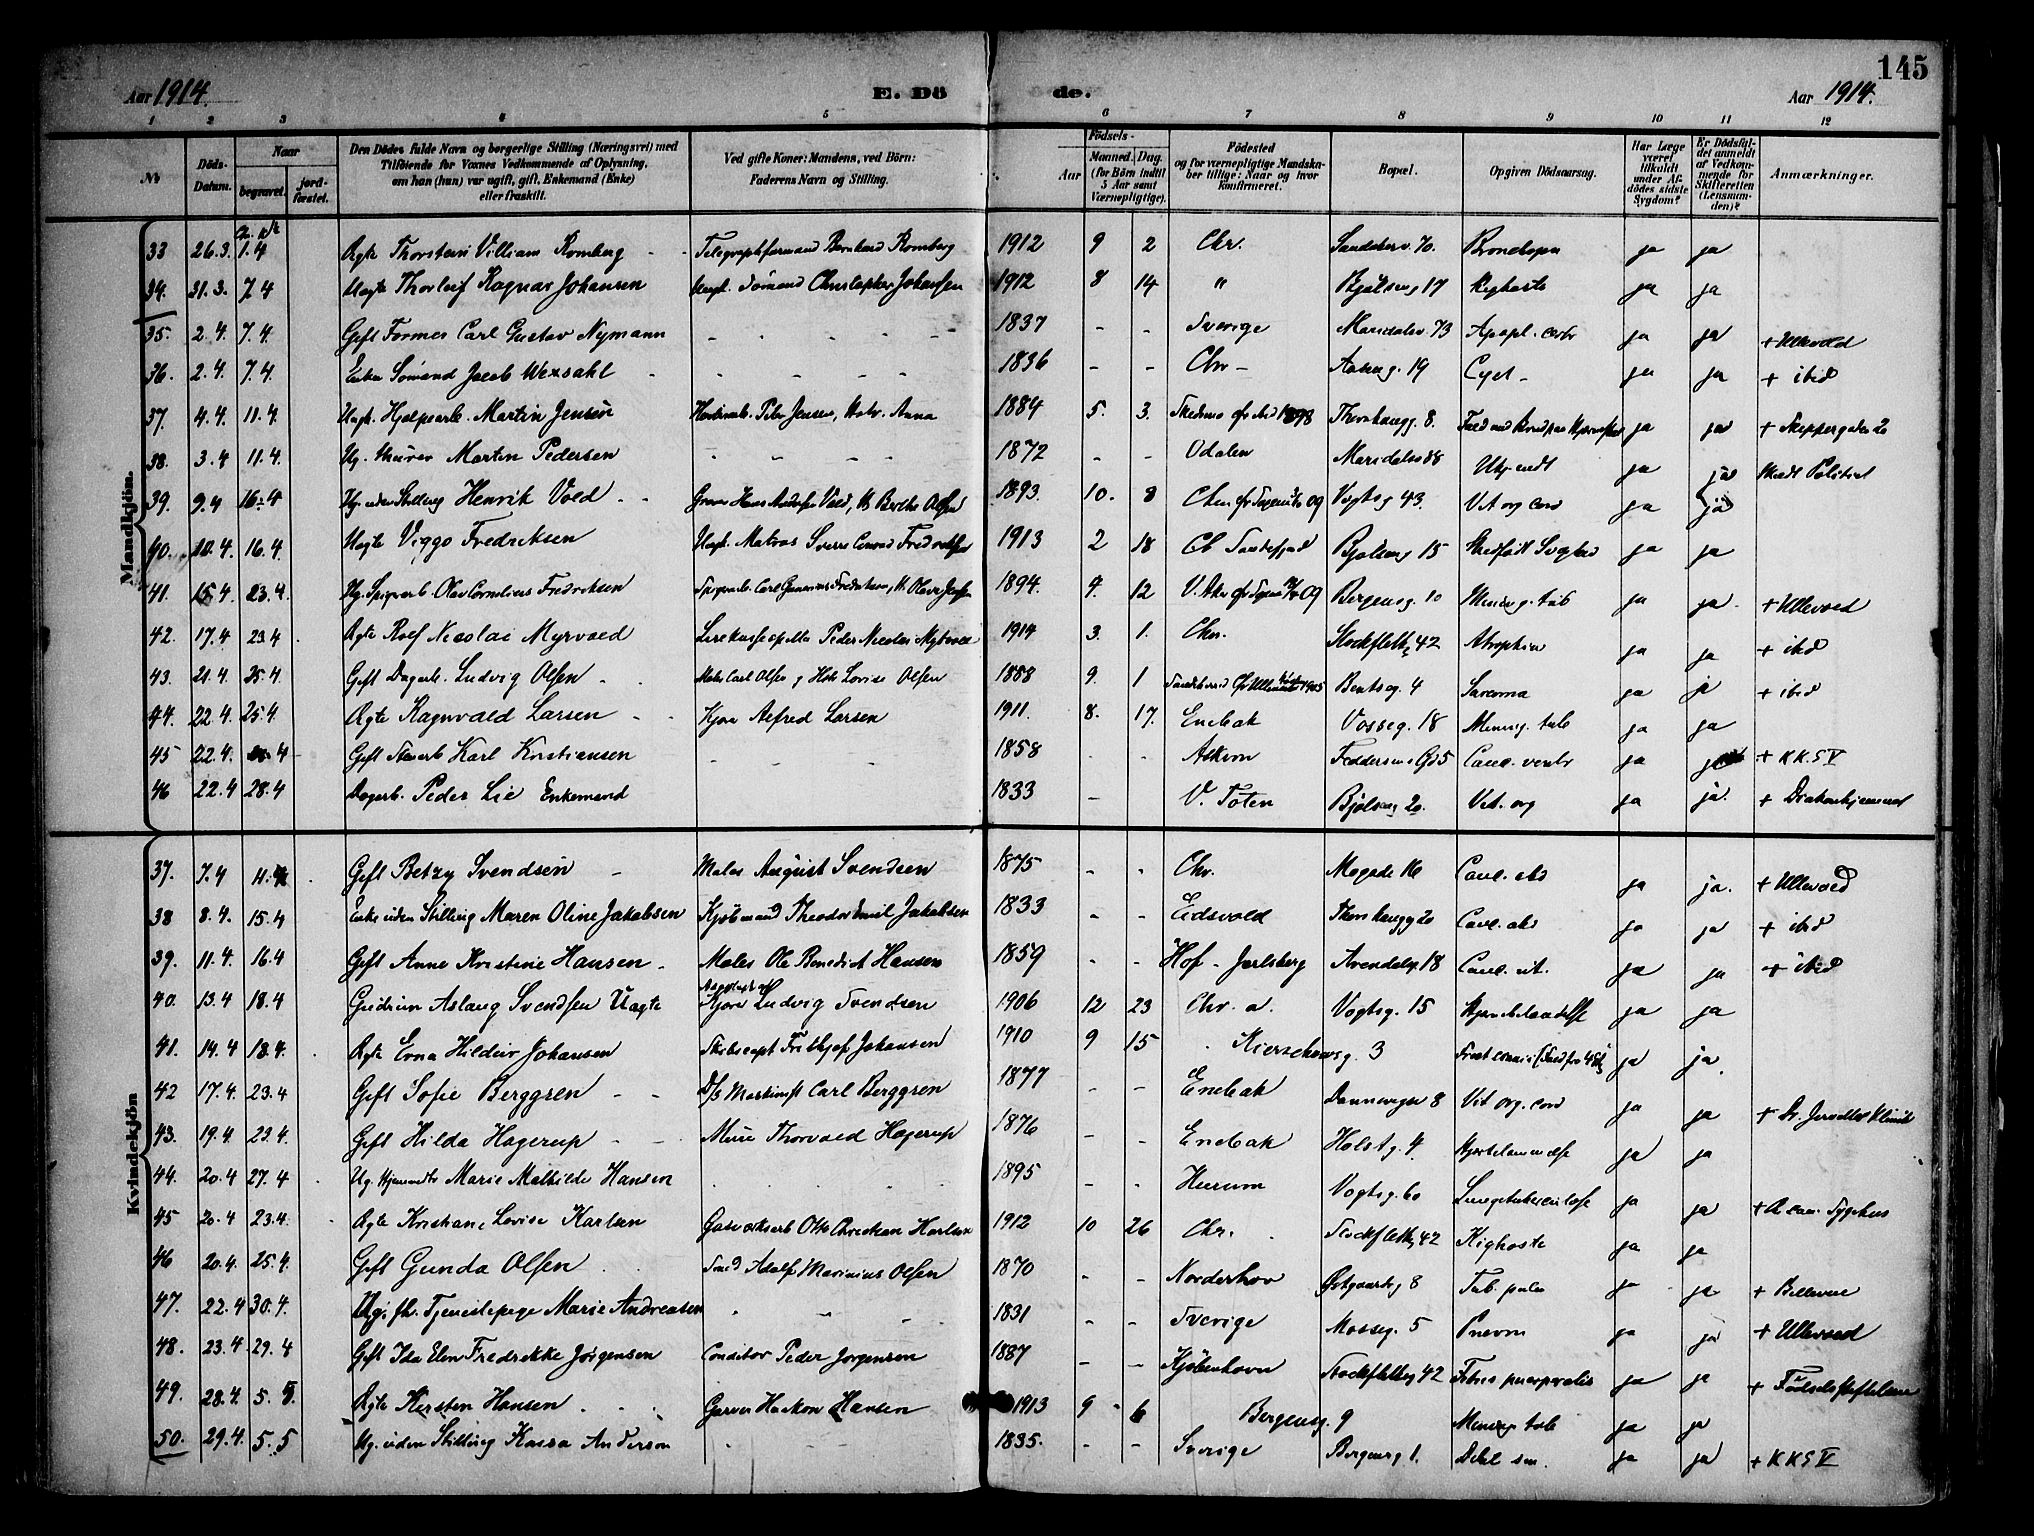 145
Aar 1914.
E. Dö de.
Aar 1914.
1 2 3 4 5 6 7 8 9 10 11 12
No
Döds-Datum.
Naar
begravet.
jordfæstet.
Den Dödes fulde Navn og borgerlige Stilling (Næringsvei) med Tilföiende for Voxnes Vedkommende af Oplysning, om han (hun) var ugift, gift, Enkemand (Enke) eller fraskilt.
Ved gifte Koner: Mandens, ved Börn: Faderens Navn og Stilling.
Födsels-
Aar
Maaned. Dag. (for Börn indtil 5 Aar samt Værnepligtige).
Födested og for værnepligtige Mandskaber tillige: Naar og hvor konfirmeret.
Bopæl.
Opgiven Dödsaarsag.
Har Læge været tilkaldt under Afdödes sidste Sygdom?
Er Dödsfaldet anmeldt af Vedkommende for Skifteretten (Lensmanden)?
Anmærkninger.
Mandkjön.
33 26.3. 1.4 Ægte Thorstein William Romberg Telegrafformand Bernhard Romberg 1912 9 2 Chr. 70. ja ja
34. 31.3. 7.4 Uægte Thorleif Ragnar Johansen Uægt. Sømand Christopher Johansen 1912 8 14 " Bjølseng 17 Kighoste ja ja
35. 2.4. 7.4. Gift Former Carl Gustav Nymann 1837 - - Sverige Maridalsv 73 Apopl. cerebr ja ja + Ullevold
36. 2.4. 7.4. Enkem Sømand Jacob Wexsahl 1836 - - Chr - 19 Cyst - ja ja + ibid
37. 4.4. 11.4. Ugt. Hjelpearb. Martin Jensen Peter Jensen, Anna 1884 5. 3. 1898 Thorshaugg. 8. ja ja + Skippergaden 20
38. 3.4 11.4. Ug. Murer Martin Pedersen 1872 - - Odalen Maridalsv 88 ja ja Politiet
39. 9.4 16.4 Ug. uden Stilling Henrik Vold Graver Hans Vold, Berthe Olsen 1893. 10. 8 09 Vogtsg 43. Vit org cord ja ja
40. 10.4. 16.4. Uægte Viggo Fredriksen Uægt. Matros Sverre Conrad Fredriksen 1913 2 18 Sandefjord Bjølseng 15 Medfødt Svaghed ja ja
41. 15.4. 23.4. Ug. Spigerarb. Olav Cornelius Fredriksen Spigerarb. Carl Fredriksen, 1894. 4. 12 V. Aker 09 Bergensg. 10 Mening. tub ja ja. + Ullevold
42. 17.4 23.4 Ægte Rolf Nicolai Myrvold Peder Nicolai Myrvold 1914 3. 1. Chr. Stockfletg 42 Atrophia ja ja + ibid
43. 21.4 25.4. Gift Dagarb. Ludvig Olsen Maler Carl Olsen og Lovise Olsen 1888 9. 1 1905 Bentseg. 4 Sarcoma ja ja + ibid
44. 22.4. 25.4. Ægte Ragnvald Larsen Kjører Alfred Larsen 1911. 8. 17. Enebak Vosseg. 18 Mening. tub ja ja
45 22.4. 4 Gift Karl Kristiansen 1858 - - Askim Feddersens Gd 5 Canc. ventr ja ja + KKSV
46 22.4 28.4 Dagarb. Peder Lie Enkemand 1833 - V. Toten Bjølseng 20. Vit. org ja ja. + Diakonhjemmet
Kvindekjön
37. 7.4 11.4 Gift Betzy Svendsen Maler August Svendsen 1875 - - Chr. 16 Canc. abd ja ja. + Ullevold
38 8.4. 15.4 Enke uden Stilling Maren Oline Jakobsen Kjøbmand Theodor Emil Jakobsen 1833 - - Eidsvold Thorshaugg 20 Canc. abd ja ja + ibid
39. 11.4. 16.4 Gift Anne Kristine Hansen Maler Ole Benedict Hansen 1859 - - Hof - Jarlsberg Arendalsg. 18 Canc. ut. ja ja + ibid
40. 13.4 18.4 Gudrun Aslaug Svendsen Uægte Kjører Ludvig Svendsen 1906 12 23 Chr. a. Vogtsg. 15 ja ja
41. 14.4 18.4. Ægte Erna Hildur Johansen Skibscapt Fritjof Johansen 1910 9 15 Kierschowsg. 3 ja ja.
42 17.4. 23.4 Gift Sofie Berggren D/S Maskinist Carl Berggren 1877 - - Enebak Dannevigsv 8 Vit org. cord ja ja + Dr. Jervells Klinik
43. 19.4. 23.4. Gift Hilda Hagerup Murer Thorvald Hagerup 1876 - - Enebak Holstg. 4 Hjertelammelse ja ja
44. 20.4 27.4 Ug. Marie Mathilde Hansen 1895 - - Hurum Vogtsg. 60 Lungetuberculose ja ja Sygehus
45 20.4 23.4. Ægte Kristiane Lovise Karlsen Gasverksarb Otto Christian Karlsen 1912 10 26 Chr. Stockfletg 42 Kighoste ja ja
46 20.4. 25.4. Gift Gunda Olsen Smed Adolf Marinius Olsen 1870 - - Norderhov Østgaardsg 8 Tub. pulm ja ja + Bellevue
47. 22.4 30.4. Ug. fh. Tjenestepige Marie Andreasen 1831 - - Sverige Mosseg. 5 Pnevm ja ja + Ullevold
48. 23.4 29.4 Gift Ida Elen Fredrikke Jørgensen Conditor Peder Jørgensen 1887 - - Kjøbenhavn Stockfletg 42 Febris puerperalis ja ja + Fødselsstiftelsen
49. 28.4. 5.5. Ægte Kirsten Hansen Garver Haakon Hansen 1913 9 6 Bergensg. 9 Mening tub ja ja
50. 29.4. 5.5 Ug. uden Stilling Kaisa Anderson 1835. - - Sverige Bergensg 1. Debil sen. ja ja + KKSV